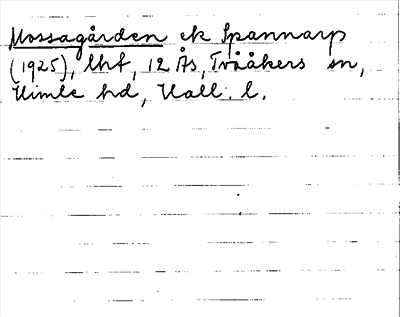 Mossagården ek Spannarp
(1925), lht, 12 Ås, Tvååkers sn,
Himle hd, Hall. l.